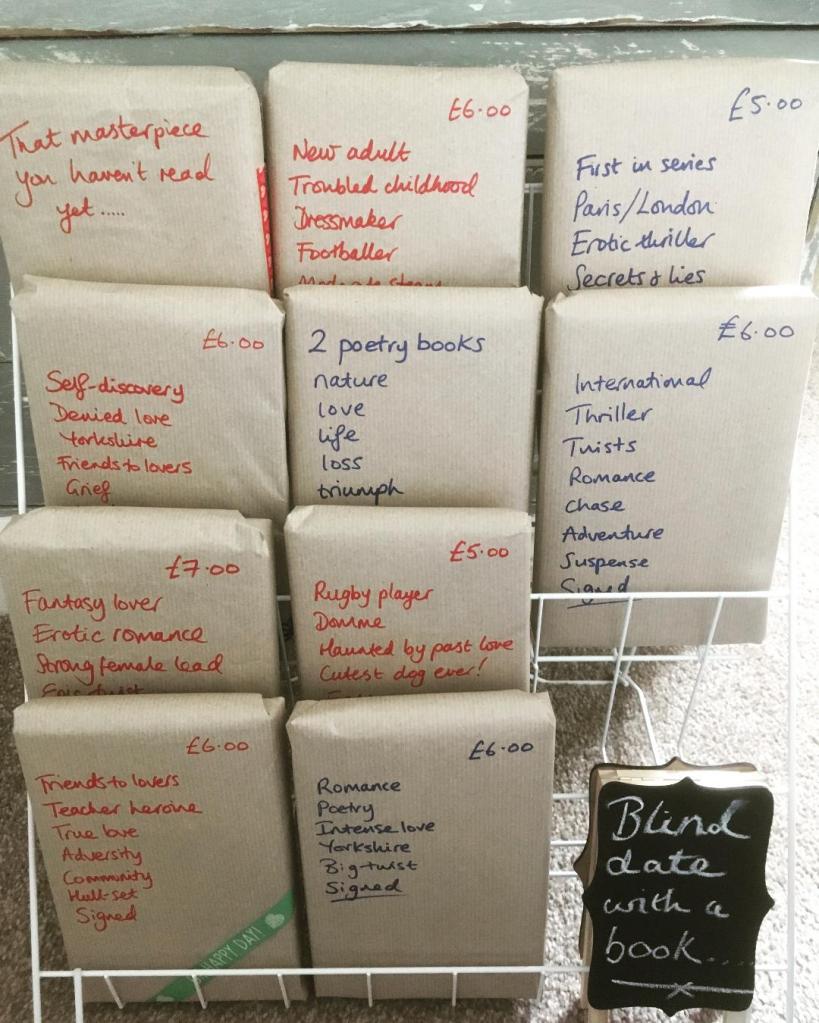 That masterpiece
you haven't read
yet.....
£6.00
New adult
Troubled childhood
Dressmaker
Footballer
£5.00
First in series
Paris/London
Erotic thriller
Secrets & lies
£6.00
Self-discovery
Denied love
Yorkshire
Friends to lovers
Grief
2 poetry books
nature
love
life
loss
triumph
£6.00
International
Thriller
Twists
Romance
Chase
Adventure
Suspense
Signed
£7.00
Fantasy lover
Erotic romance
Strong female lead
Epic twist
£5.00
Rugby player
Domme
Haunted by past love
Cutest dog ever!
£6.00
Friends to lovers
Teacher heroine
True love
Adversity
Community
Hull-set
Signed
HAPPY DAY!
£6.00
Romance
Poetry
Intense love
Yorkshire
Big-twist
Signed
Blind
date
with a
book....